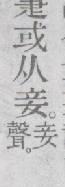 或从妾。
妾
聲。